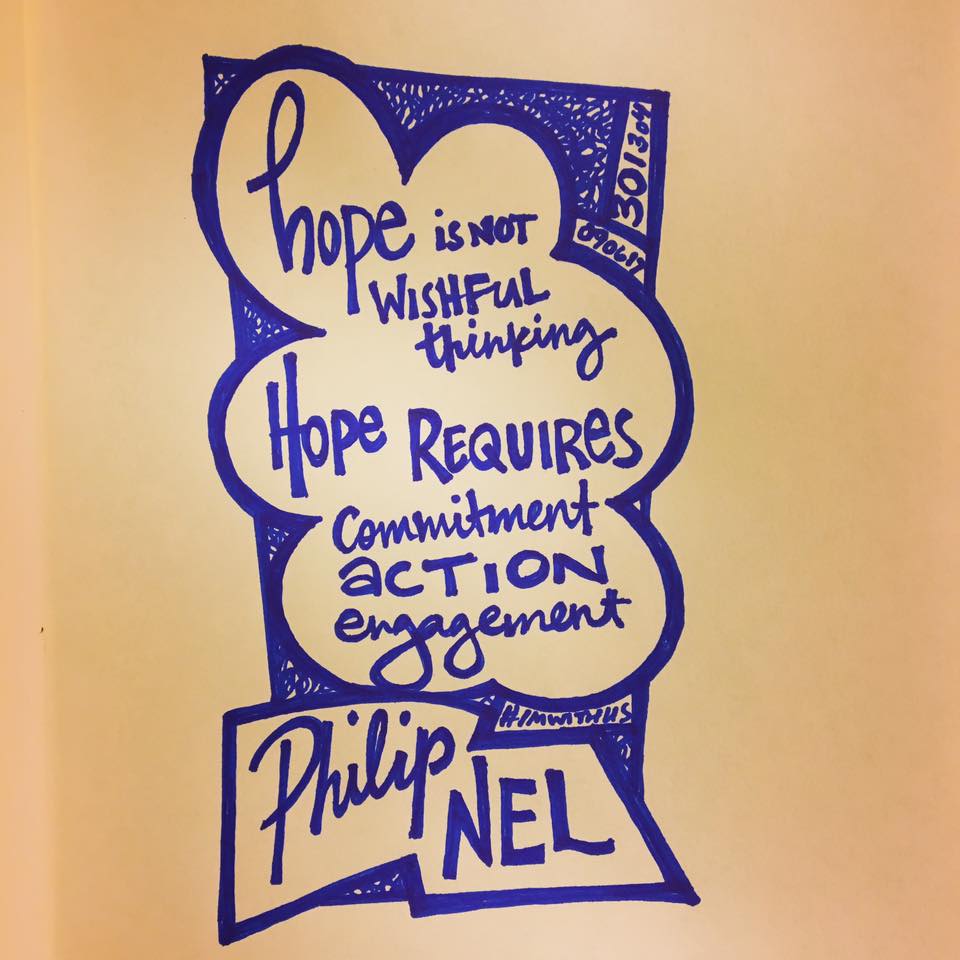 hope is NOT
WISHFUL
thinking
Hope REQUIRES
commitment
action
engagement
Philip
NEL
#IMWITHUS
301304
090617